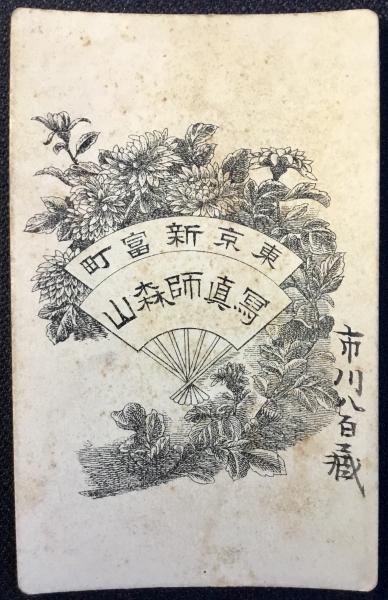 東京新富町
寫眞師森山
市川八百藏